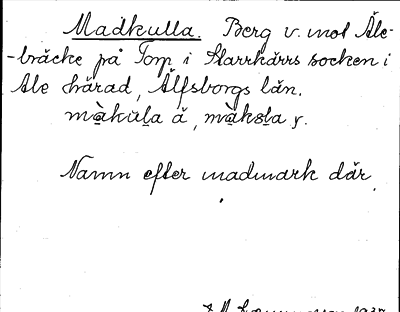 Madkulla. Berg v. mot Åle-
-bräcke på Torp i Starrkärrs socken i
Ale härad, Älfsborgs län.
màkùla ä, màksla y.
Namn efter madmark där.